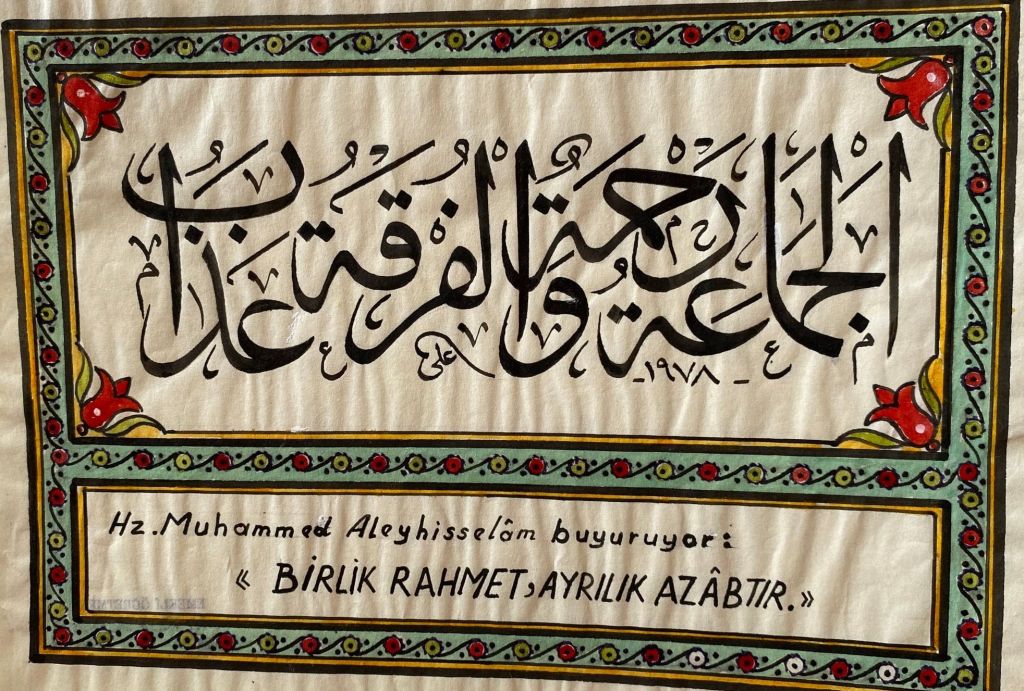 الجماعة رحمة والفرقة عذاب
علی
-١٩٧٨-
Hz. Muhammed Aleyhisselâm buyuruyor:
« BİRLİK RAHMET, AYRILIK AZÂBTIR.»